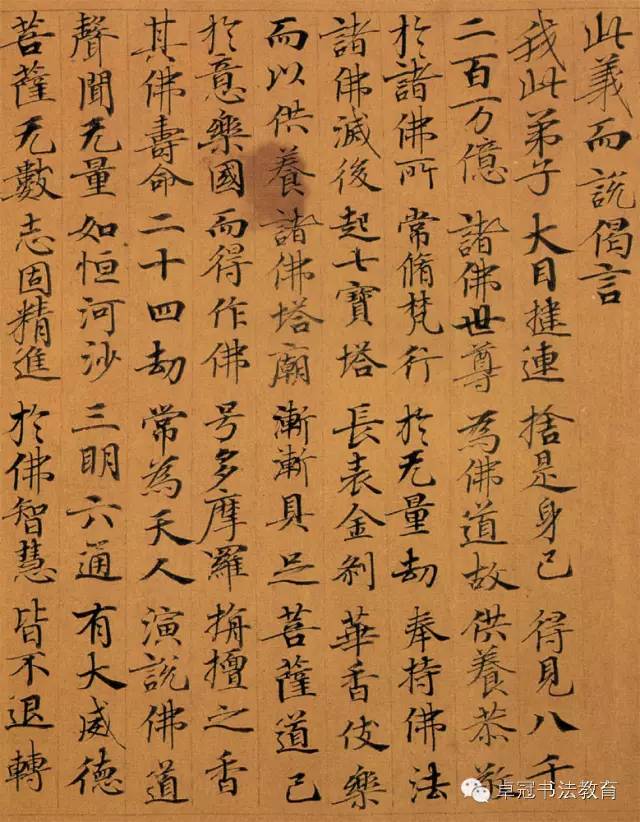 此義而說偈言
我此弟子 大目揵連 捨是身已 得見八千
二百万億 諸佛世尊 為佛道故 供養恭敬
於諸佛所 常脩梵行 於无量劫 奉持佛法
諸佛滅後 起七寶塔 長表金刹 華香伎樂
而以供養 諸佛塔廟 漸漸具足 菩薩道已
於意樂國 而得作佛 号多摩羅 栴檀之香
其佛壽命 二十四劫 常為天人 演說佛道
聲聞无量 如恒河沙 三明六通 有大威德
菩薩无數 志固精進 於佛智慧 皆不退轉
卓冠书法教育